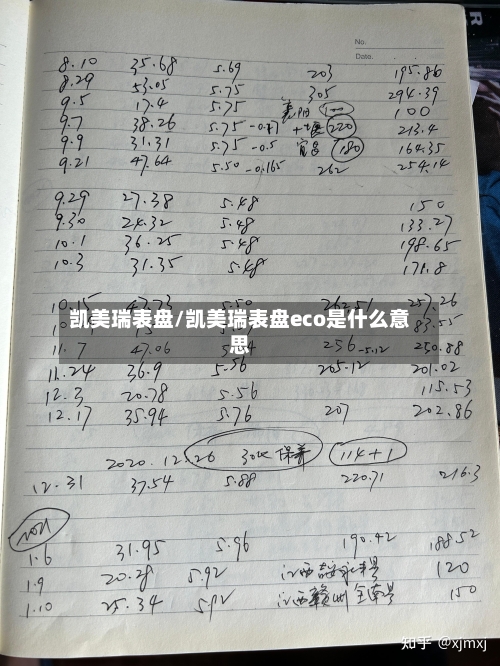 No.
Date.
8.10 35.68 5.69 203 195.86
8.29 53.05 5.75 305 294.39
9.5 17.4 5.75 襄阳 100 100
9.7 38.26 5.75 -0.17 十堰 220 213.4
9.9 31.31 5.75 -0.5 宜昌 180 164.35
9.21 47.64 5.50 -0.165 262 254.14
9.29 27.38 5.48 150
9.30 24.32 5.48 133.27
10.1 36.25 5.48 198.65
10.3 31.35 5.48 171.8
10.15 47.73 5.50 262.51 257.26
凯美瑞表盘/凯美瑞表盘eco是什么意
思
83.55
11.7 47.06 256 -5.12 250.88
11.24 36.9 5.56 205.12 201.02
12.3 20.78 5.56 115.53
12.17 35.94 5.76 207 202.86
2020.12.26 保养 114+1
12.31 37.54 5.88 220.71 216.3
2021
1.6 31.95 5.96 190.42 188.52
1.9 20.28 5.92 江西吉安永丰县 120
1.10 25.34 5.92 江西赣州全南县 150
知乎 @xjmxj